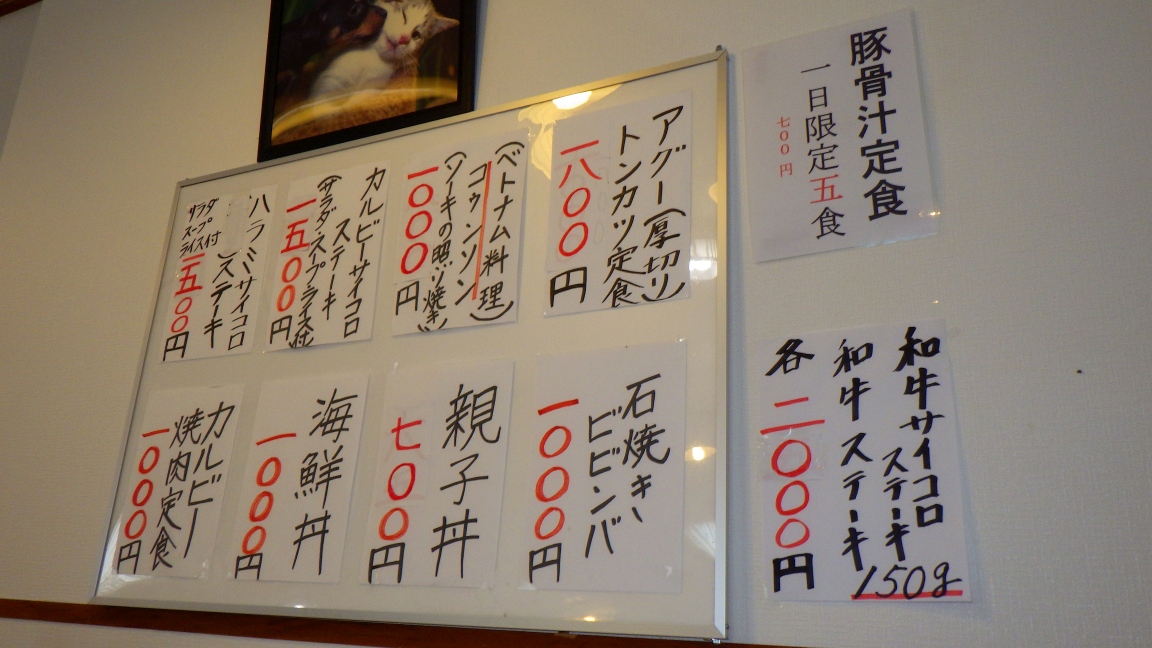 豚骨汁定食
一日限定五食
七〇〇円
アグー(厚切り)
トンカツ定食
一八〇〇円
(ベトナム料理)
コゥンソン
(ソーキの照り焼き)
一〇〇〇円
カルビーサイコロ
ステーキ
(サラダ・スープ・ライス付)
一五〇〇円
ハラミサイコロ
ステーキ
サラダ
スープ
ライス付
一五〇〇円
和牛サイコロ
ステーキ
和牛ステーキ
150g
各二〇〇〇円
石焼き
ビビンバ
一〇〇〇円
親子丼
七〇〇円
海鮮丼
一〇〇〇円
カルビー
焼肉定食
一〇〇〇円